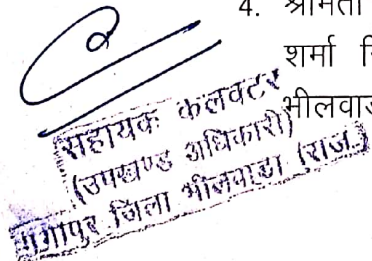 4. श्रीमती
शर्मा
भीलवाड
सहायक कलक्टर
(उपखण्ड अधिकारी)
गंगापुर जिला भीलवाडा (राज.)